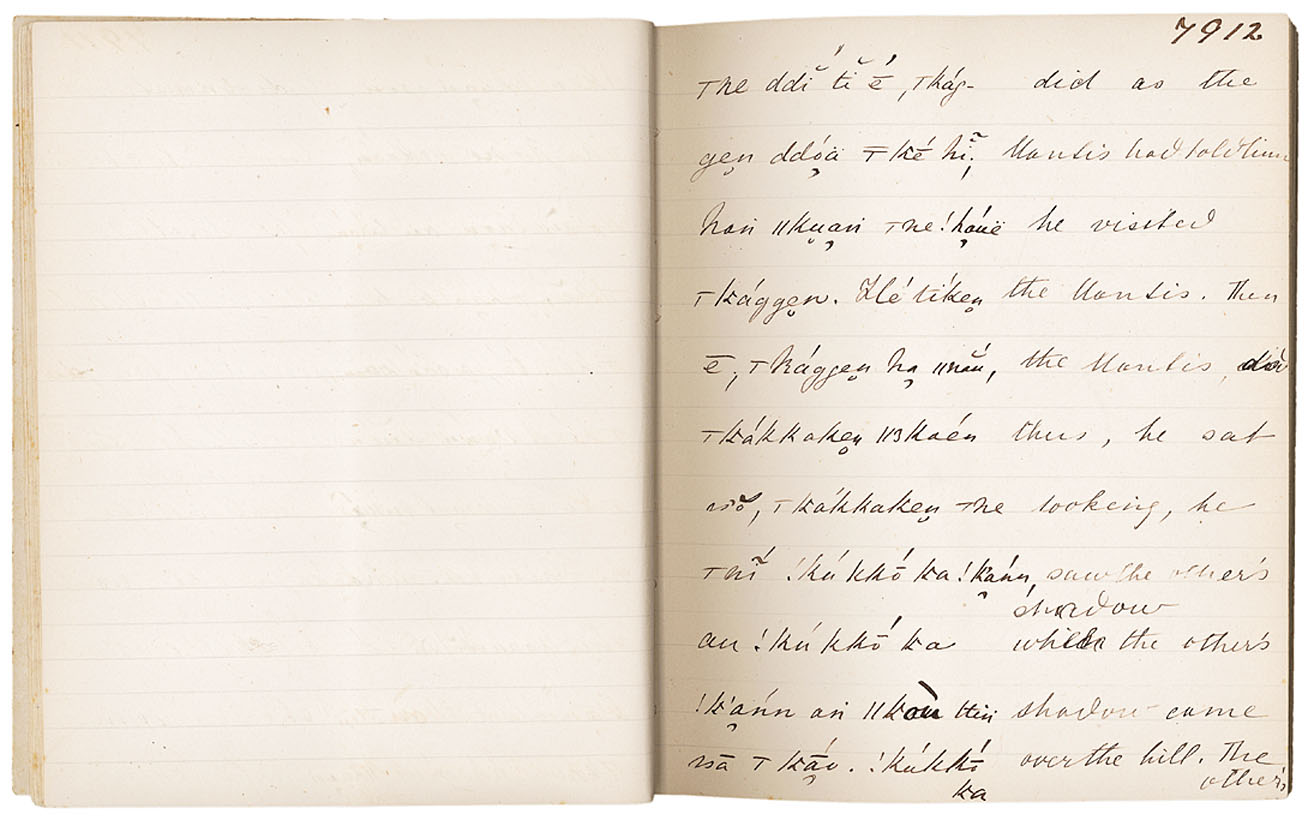 7912
ꟷne ddĭ́ tĭ ḗ, ꟷkág- did as the
gen ddóä ꟷ̄ké hĭ; Mantis had told him
han ǁkuan ꟷne !hóuë he visited
ꟷkággen. Hé tíken the Mantis. Then
ē, ꟷkággen ha ǁnău, the Mantis, did
ꟷkákkaken thus, he sat
ꟷkákkaken ꟷne looking, he
ꟷnĭ́ !kúkkṓ ka !kánn, saw the other's
shadow
au !kúkkṓ ka while the other's
!kánn an shadow came
ꟷkáo. !kúkkṓ over the hill. The
ka other's